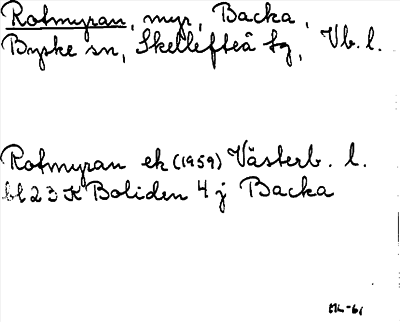 Rotmyran, myr, Backa,
Byske sn, Skellefteå tg, Vb. l.
Rotmyran ek (1959) Västerb. l.
bl 23 K Boliden 4 j Backa
ML-61